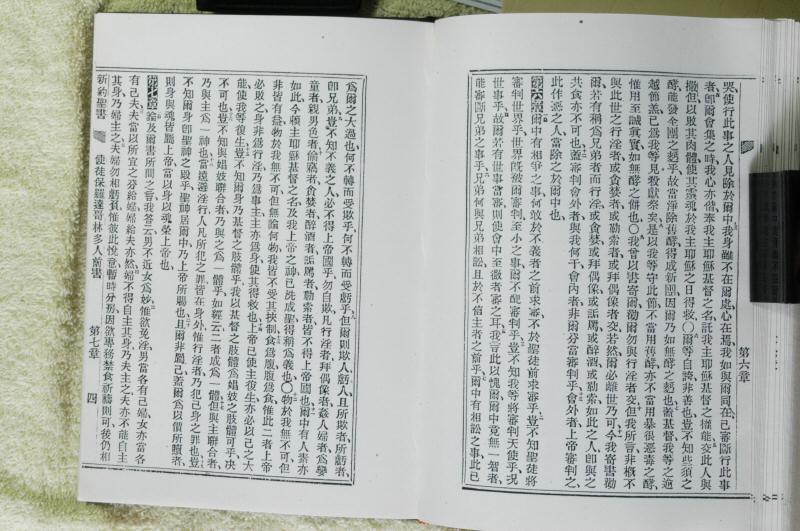 第六章
哭使行此事之人見除於爾中我身雖不在爾處心在焉我如與爾同在已審斷行此事
者卽爾會集之時我心亦偕奉我主耶穌基督之名託我主耶穌基督之權能交此人與
撒但以敗其肉體使其靈魂於我主耶穌之日得救○爾等自誇非善也豈不知些須之
酵能發全團之麪乎故當淨除舊酵得成新團因爾乃如無酵之麪也蓋基督我等之逾
越節羔已爲我等見殺獻祭矣是以我等守此節不當用舊酵亦不當用暴很惡毒之酵
惟用至誠眞實如無酵之餅也○我曾以書寄爾勸爾勿與行淫者交但我所言非槪不
與此世之行淫者或貪婪者或勒索者或拜偶像者交若然爾必離世乃可今我寄書勸
爾若有稱爲兄弟者而行淫或貪婪或拜偶像或詬厲或醉酒或勒索如此之人卽與之
共食亦不可也蓋審判會外者與我何干會內者非爾分當審判乎會外者上帝審判之
此作惡之人當除之於爾中也
第六章爾中有相爭之事何敢於不義者之前求審不於聖徒前求審乎豈不知聖徒將
審判世界乎世界旣被爾審判至小之事爾不配審判乎豈不知我等將審判天使乎況
世事乎故爾若有世事當審則使會中至微者審之耳我言此以愧爾爾中竟無一智者
能審斷兄弟之事乎兄弟何與兄弟相訟且於不信主者之前乎爾中有相訟之事此已
爲爾之大過也何不轉而受欺乎何不轉而受虧乎但爾則欺人虧人且所欺者所虧者
卽兄弟豈不知不義之人必不得上帝國乎勿自欺凡行淫者拜偶像者姦人婦者爲孌
童者親男色者偷竊者貪婪者醉酒者詬厲者勒索者皆不得上帝國也爾中有人素亦
如此今賴主耶穌基督之名及我上帝之神已洗成聖得稱爲義也○物於我無不可但
非皆有益物於我無不可但無論何物我皆不受其挾制食爲腹腹爲食惟此二者上帝
必敗之身非爲行淫乃爲事主主亦爲身使其得救也上帝已使主復生亦必以己之大
能使我等復生豈不知爾身乃基督之肢體乎我以基督之肢體爲娼妓之肢體可乎決
不可也豈不知與娼妓聯合者乃與之爲一體乎如經云二者成爲一體但與主聯合者
乃與主爲一神也當遠避淫行人凡所犯之罪皆在身外惟行淫者乃犯己身之罪也豈
不知爾身卽聖神之殿乎聖神居爾中乃上帝所賜也且爾非屬己蓋爾爲以價所贖者
則身與魂皆屬上帝當以身以魂榮上帝也
第七章論及爾書所問之言我答云男不近女爲妙惟欲免淫男當各有己婦女亦當各
有己夫夫當以所宜之分給婦婦給夫亦然婦不得自主其身乃夫主之夫亦不能自主
其身乃婦主之夫婦勿相虧負惟彼此悅意暫時分房因欲專務禁食祈禱則可後仍相
新約聖書 使徒保羅達哥林多人前書 第七章 四